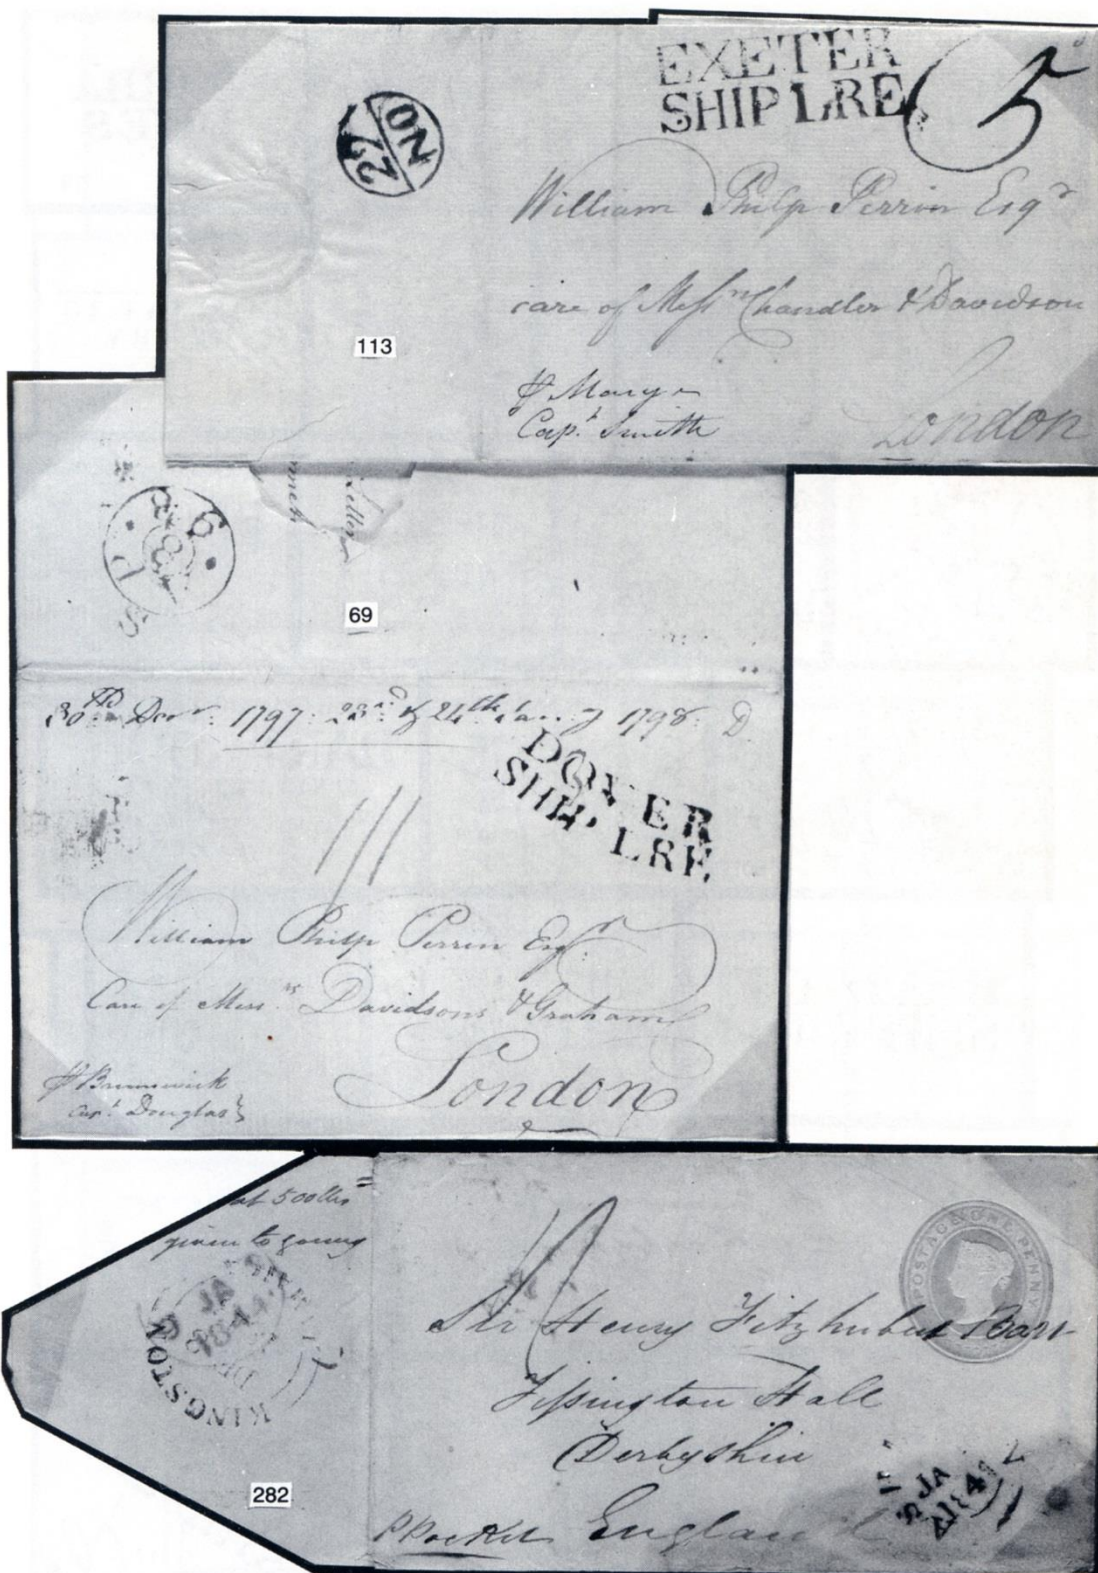 EXETER
SHIP LRE
5
22 NO
William Philp Perrin Esqr
care of Messrs Chandler & Davidson
113
London
P Mary
Capt Smith
Letter
69
30th Decr: 1797: 23d & 24th Jany 1798: D
DOVER
SHIP LRE
1/1
William Philp Perrin Esqr.
Care of Messrs Davidsons & Graham
London
P Brunswick
Capt Douglas
at 500lbs
given to young
JA
184
KINGSTON
282
POSTAGE ONE PENNY
Sir Henry Fitzherbert Bart
Tissington Hall
Derbyshire
P Packet England
JA